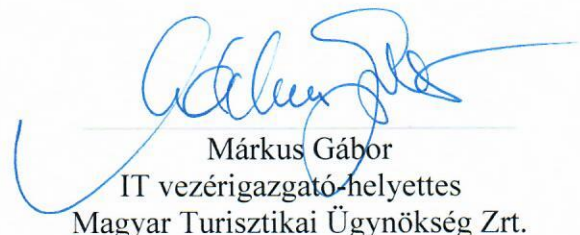 Márkus Gábor
IT vezérigazgató-helyettes
Magyar Turisztikai Ügynökség Zrt.